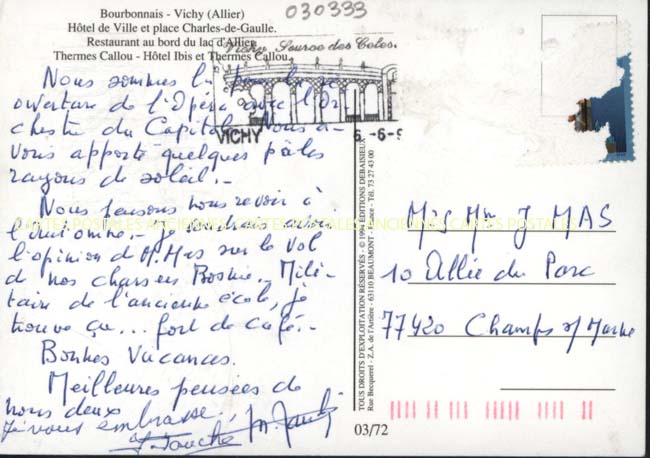 Bourbonnais - Vichy (Allier)
Hôtel de Ville et place Charles-de-Gaulle.
Restaurant au bord du lac d'Allier.
Thermes Callou - Hôtel Ibis et Thermes Callou.
030333
Vichy Source des Celes.
VICHY
6 -6-9
Nous sommes
ouverture de l'Opéra avec l'Or
chestre du Capitole. Nous a-
vons apporté quelques pâles
rayons de soleil.-
Nous pensons nous revoir à
l'automne.- Je voudrais avoir
l'opinion d M. Mas sur le vol
de nos chasseurs Bosnie. Mili-
taire de l'ancienne école, je
trouve ça... fort de café.-
Bonnes Vacances.
Meilleures pensées de
nous deux
Je vous embrasse.
CARTES POSTALES ANCIENNES CARTES POSTALES ANCIENNES CARTES POSTALES
TOUS DROITS D'EXPLOITATION RÉSERVÉS - © 1994 EDITIONS DEBAISIEUX
Rue Becquerel - Z.A. de l'Artière - 63110 BEAUMONT - France - Tél. 73 27 43 00
M et Me J MAS
10 Allée du Parc
77420 Champs s/ Marne
03/72